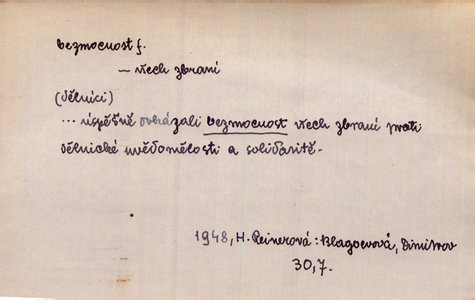 bezmocnost f.
— všech zbraní
(dělníci)
... úspěšně dokázali bezmocnost všech zbraní proti
dělnické uvědomělosti a solidaritě.
1948, H. Reinerová: Blagoevová, Dimitrov
30,7.